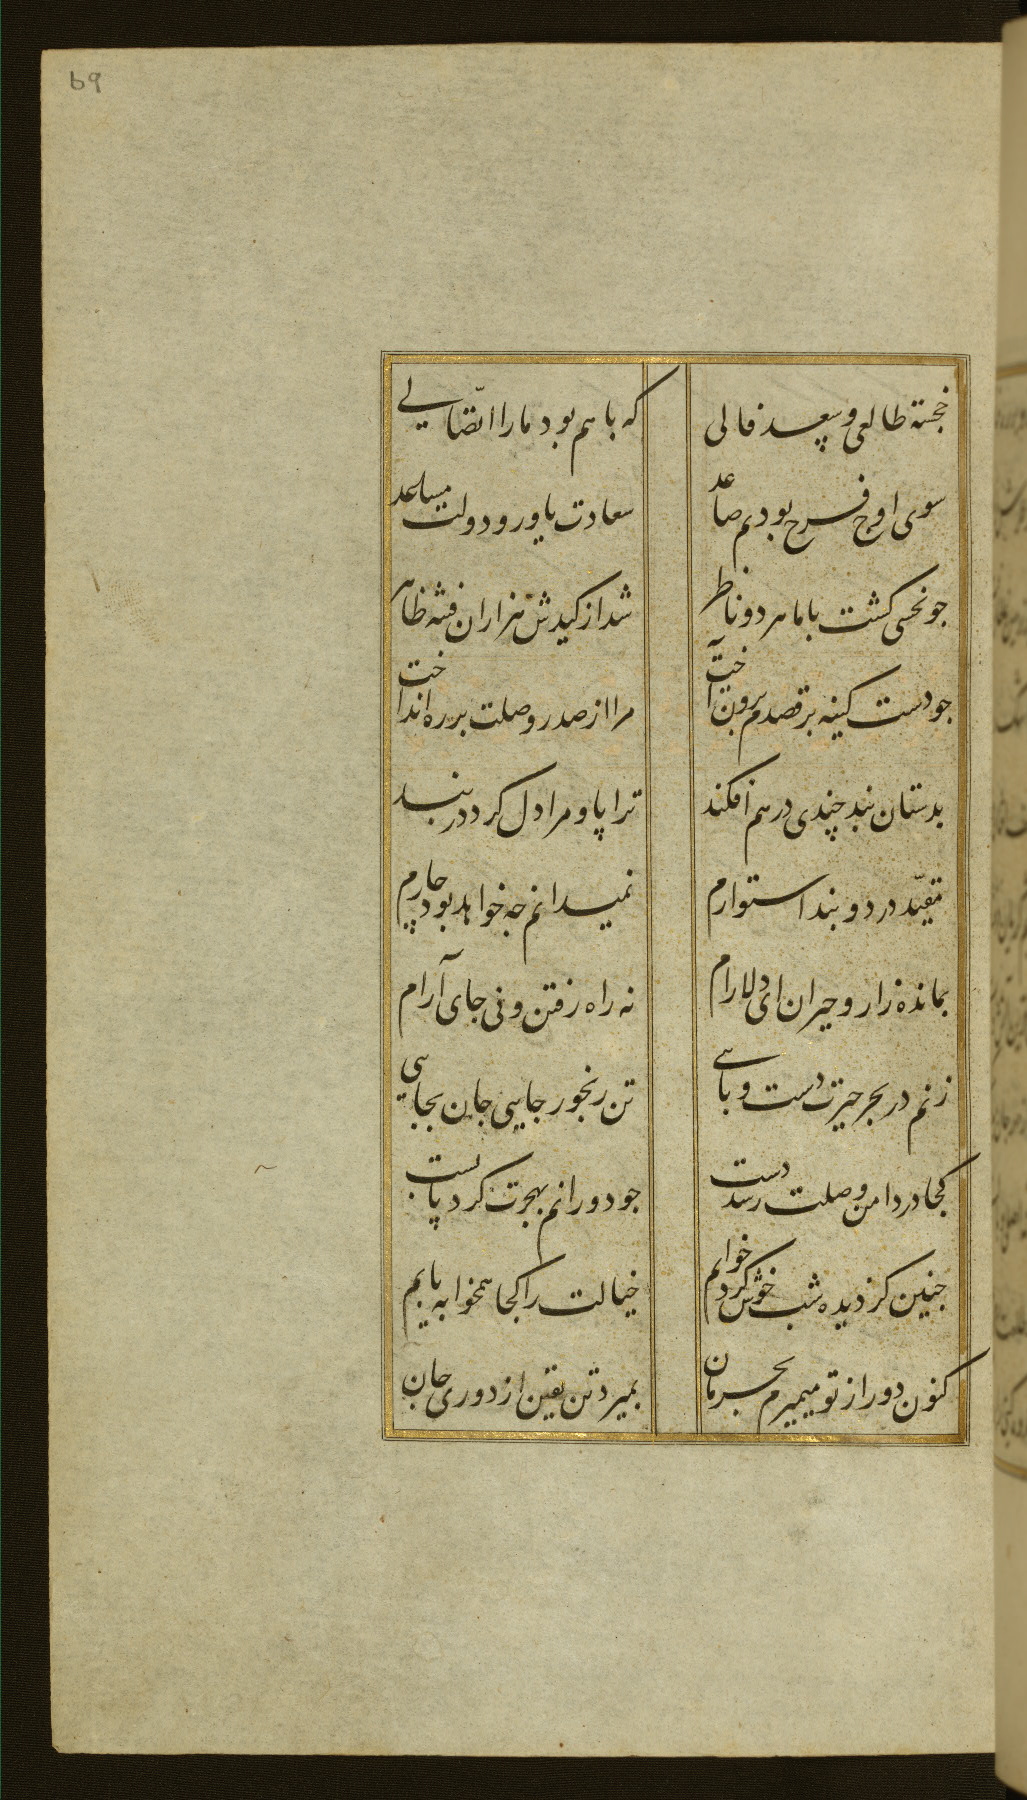 69
خجسته طالعی و سعد فالی که با هم بود ما را اتّصالی
سوی اوج فرح بودیم صاعد سعادت یاور و دولت مساعد
جو نحسی کشت با ما هر دو ناظر شد از کیدش هزاران فتنه ظاهر
جو دست کینه بر قصدم برون آخت مرا از صدر وصلت بر ره انداخت
بدستان بند چندی در هم افکند ترا پا و مرا دل کرد در بند
مقیّد در دو بند استوارم نمیدانم جه خواهد بود جارم
بمانده زار و حیران ای دلارام نه راه رفتن و نی جای آرام
زنم در بحر حیرت دست و بایی تن رنجور جایی جان بجایی
کجا در دامن وصلت رسد دست جو دورانم بهجرت کرد پابست
جنین کز دیده شب خوش کرد خوابم خیالت را کجا همخوابه یابم
کنون دور از تو میمیرم بحرمان بمیرد تن یقین از دوری جان